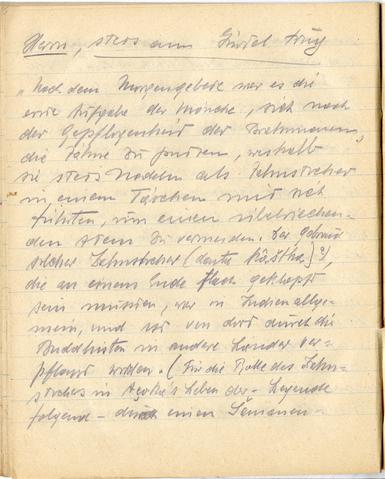 Herrn, stets am Gürtel trug
„Nach dem Morgengebete war es die
erste Aufgabe der Mönche, sich nach
der Gepflogenheit der Brahmanen,
die Zähne zu putzen, weshalb
sie stets Nadeln als Zahnstocher
in einem Täschchen mit sich
führten, um einen übelriechen-
den Atem zu vermeiden. Der Gebrauch
solcher Zahnstocher (danta Kāṣṭha)
die an einem Ende flach geklopft
sein mussten, war in Indien allge-
mein, und ist von dort durch die
Buddhisten in andere Länder ver-
pflanzt worden. (Für die Rolle des Zahn-
stochers in Açoka's Leben der Legende
folgend - durch einen